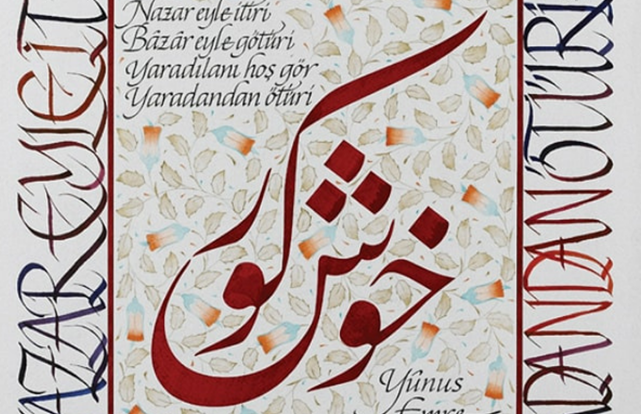 Nazar eyle itiri
Bâzâr eyle götüri
Yaradılanı hoş gör
Yaradandan ötüri
خوش كور
Yûnus
Emre
AZAR EYLE İT
DANDAN ÖTÜRİ